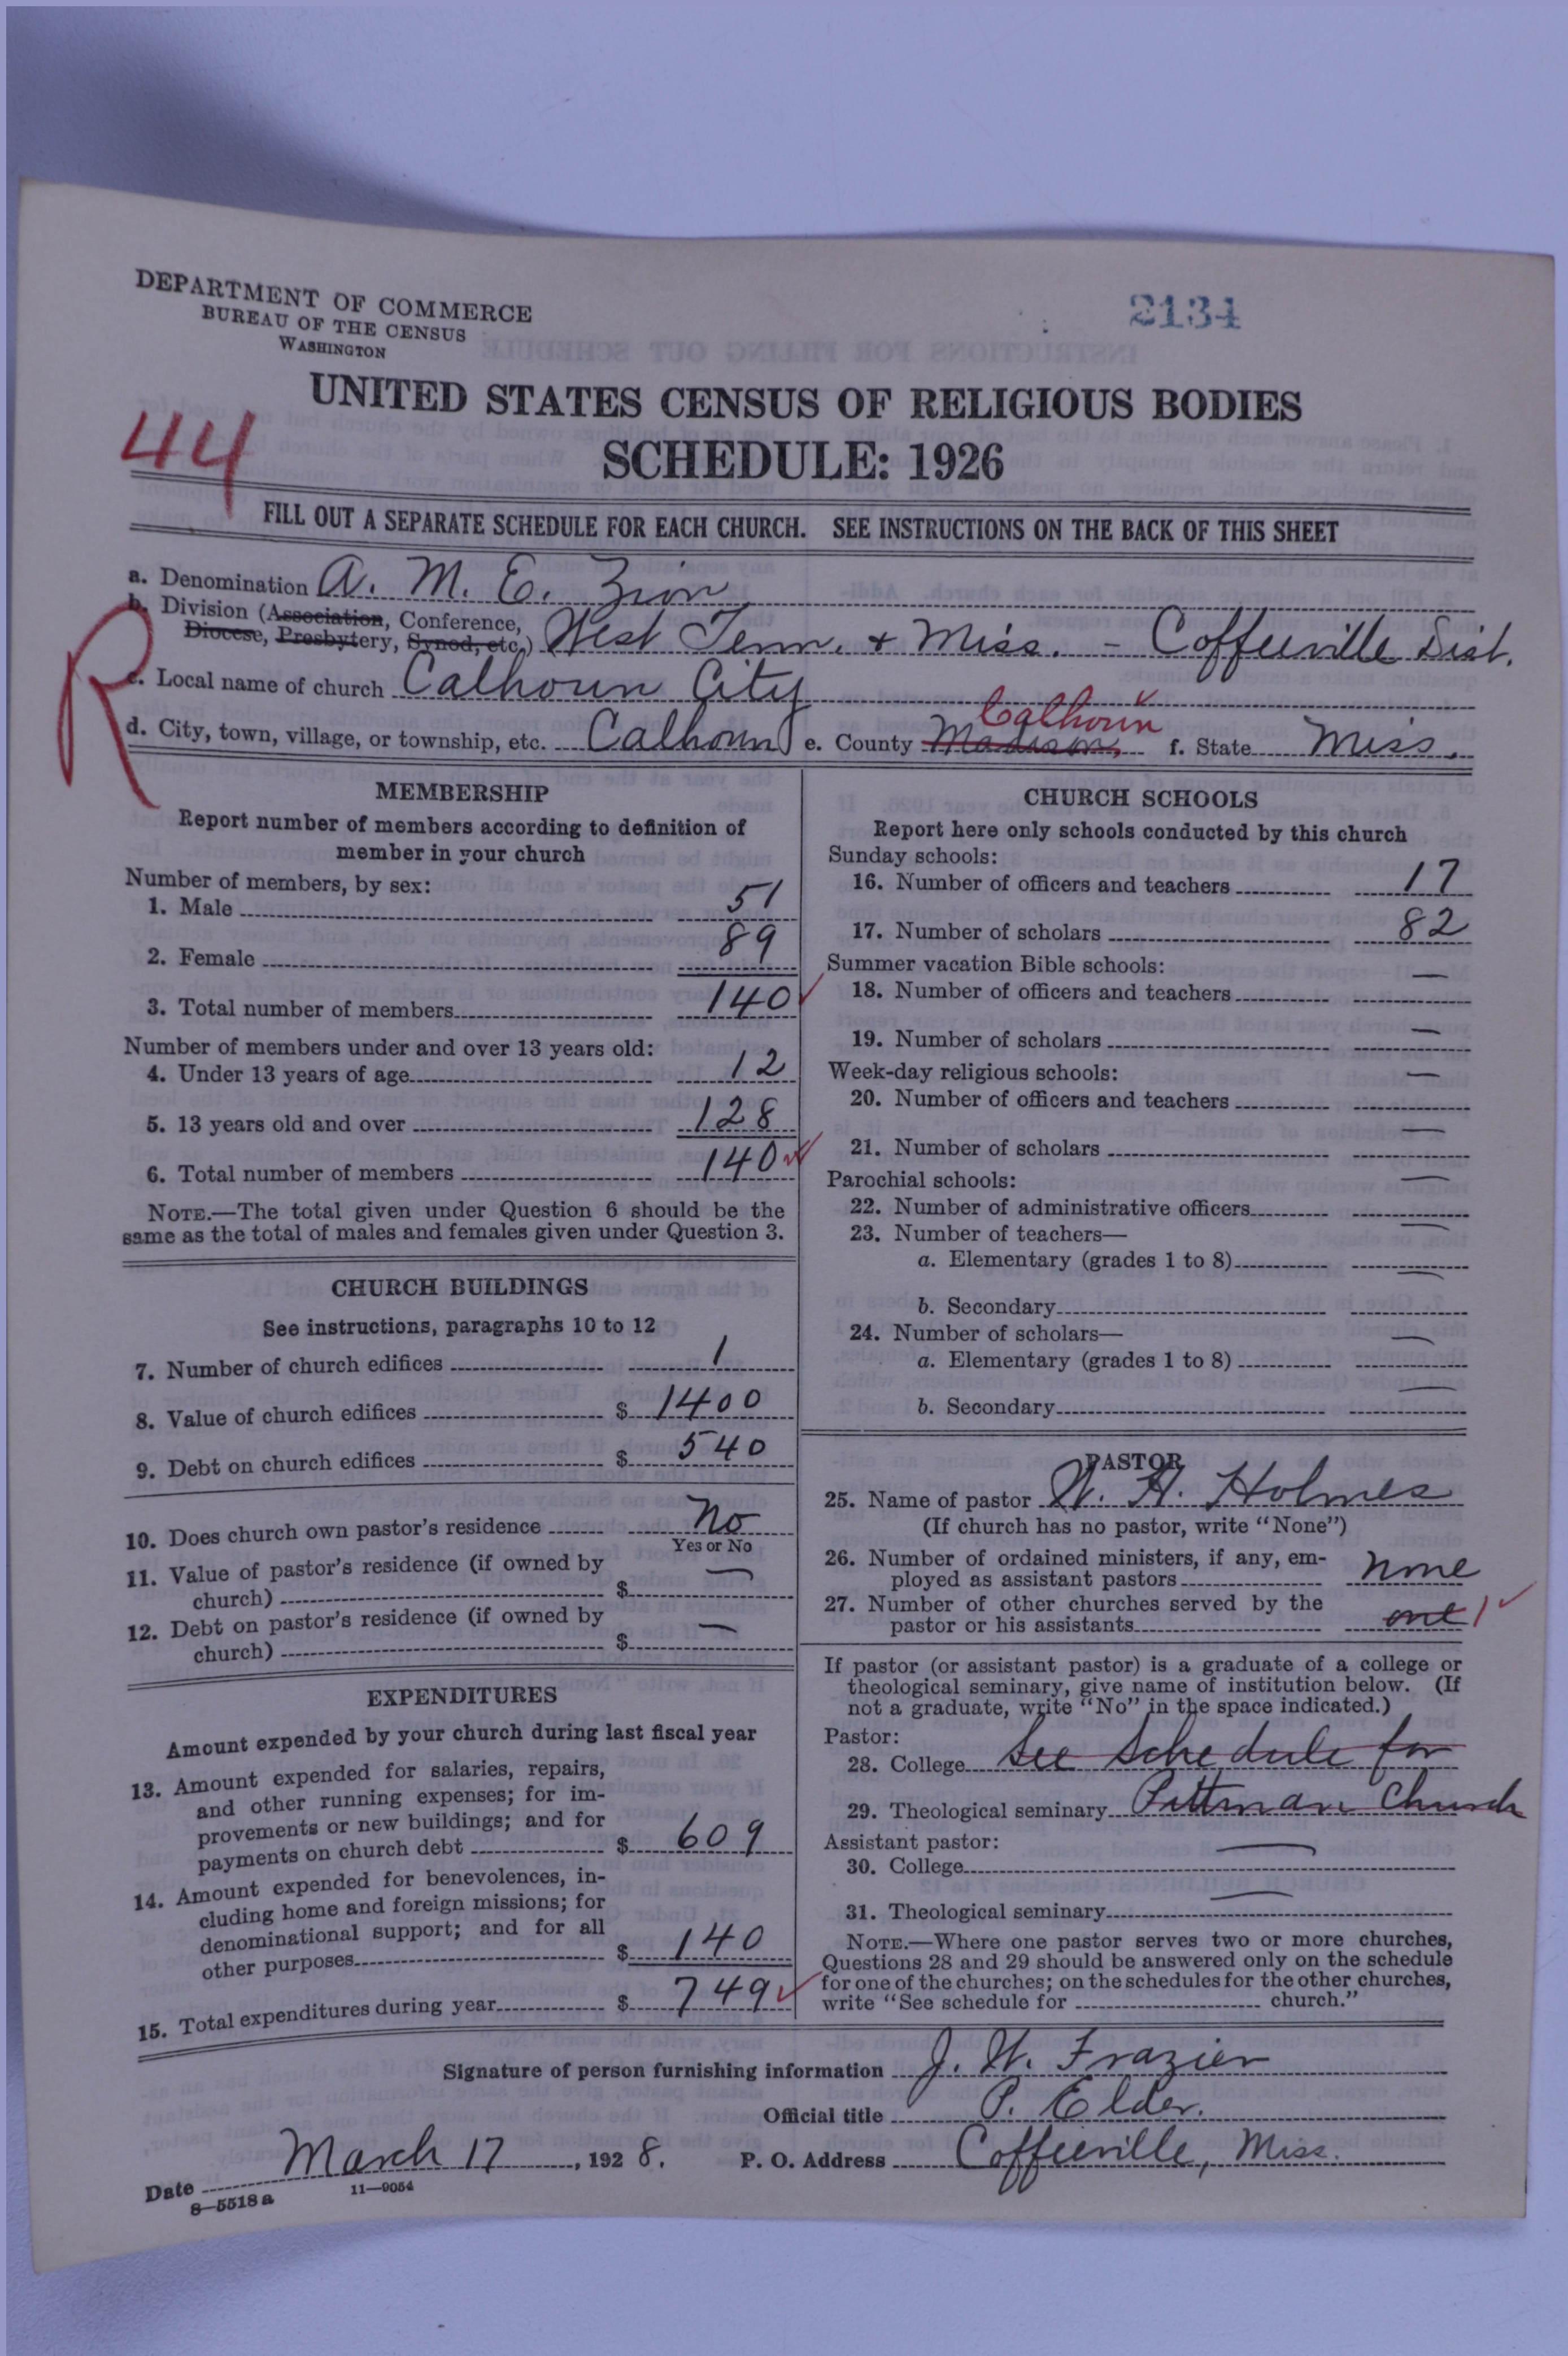 DEPARTMENT OF COMMERCE
BUREAU OF THE CENSUS
WASHINGTON
2134
UNITED STATES CENSUS OF RELIGIOUS BODIES
SCHEDULE: 1926
44
FILL OUT A SEPARATE SCHEDULE FOR EACH CHURCH. SEE INSTRUCTIONS ON THE BACK OF THIS SHEET
a. Denomination A. M. E. Zion
b. Division (Association, Conference,
Diocese, Presbytery, Synod, etc.) West Tenn. + Miss. - Coffeeville Dist.
R
c. Local name of church Calhoun City
Calhoun
d. City, town, village, or township, etc. Calhoun e. County Madison, f. State Miss.
MEMBERSHIP
Report number of members according to definition of
member in your church
Number of members, by sex:
1. Male 51
2. Female 89
3. Total number of members 140
Number of members under and over 13 years old:
4. Under 13 years of age 12
5. 13 years old and over 128
6. Total number of members 140
NOTE.—The total given under Question 6 should be the
same as the total of males and females given under Question 3.
CHURCH BUILDINGS
See instructions, paragraphs 10 to 12
7. Number of church edifices 1
8. Value of church edifices $ 1400
9. Debt on church edifices $ 540
10. Does church own pastor's residence No
Yes or No
11. Value of pastor's residence (if owned by
church) $ —
12. Debt on pastor's residence (if owned by
church) $ —
EXPENDITURES
Amount expended by your church during last fiscal year
13. Amount expended for salaries, repairs,
and other running expenses; for im-
provements or new buildings; and for
payments on church debt $ 609
14. Amount expended for benevolences, in-
cluding home and foreign missions; for
denominational support; and for all
other purposes $ 140
15. Total expenditures during year $ 749
CHURCH SCHOOLS
Report here only schools conducted by this church
Sunday schools:
16. Number of officers and teachers 17
17. Number of scholars 82
Summer vacation Bible schools:
18. Number of officers and teachers —
19. Number of scholars —
Week-day religious schools:
20. Number of officers and teachers —
21. Number of scholars —
Parochial schools:
22. Number of administrative officers —
23. Number of teachers—
a. Elementary (grades 1 to 8) —
b. Secondary —
24. Number of scholars—
a. Elementary (grades 1 to 8) —
b. Secondary —
PASTOR
25. Name of pastor W. H. Holmes
(If church has no pastor, write "None")
26. Number of ordained ministers, if any, em-
ployed as assistant pastors none
27. Number of other churches served by the
pastor or his assistants one 1
If pastor (or assistant pastor) is a graduate of a college or
theological seminary, give name of institution below. (If
not a graduate, write "No" in the space indicated.)
Pastor:
28. College See Schedule for
29. Theological seminary Pittman Church
Assistant pastor:
30. College —
31. Theological seminary —
NOTE.—Where one pastor serves two or more churches,
Questions 28 and 29 should be answered only on the schedule
for one of the churches; on the schedules for the other churches,
write "See schedule for ---------- church."
Signature of person furnishing information J. W. Frazier
Official title P. Elder.
Date March 17, 1928. P. O. Address Coffeeville, Miss.
8—5518 a 11—9054